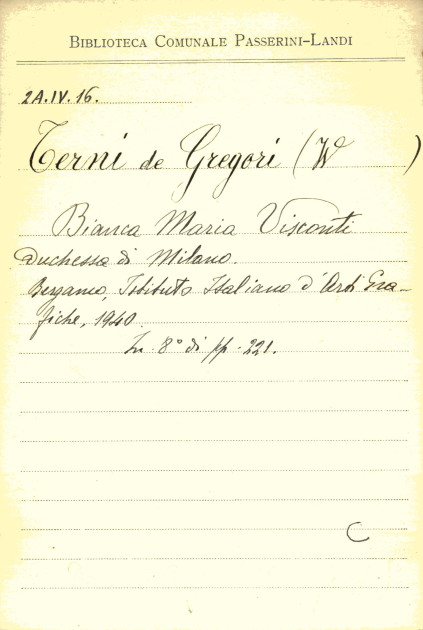 BIBLIOTECA COMUNALE PASSERINI-LANDI
2A.IV.16.
Terni de Gregori (W )
Bianca Maria Visconti
Duchessa di Milano.
Bergamo, Istituto Italiano d'Arti Gra-
fiche, 1940.
In. 8° di pp. 221.
C